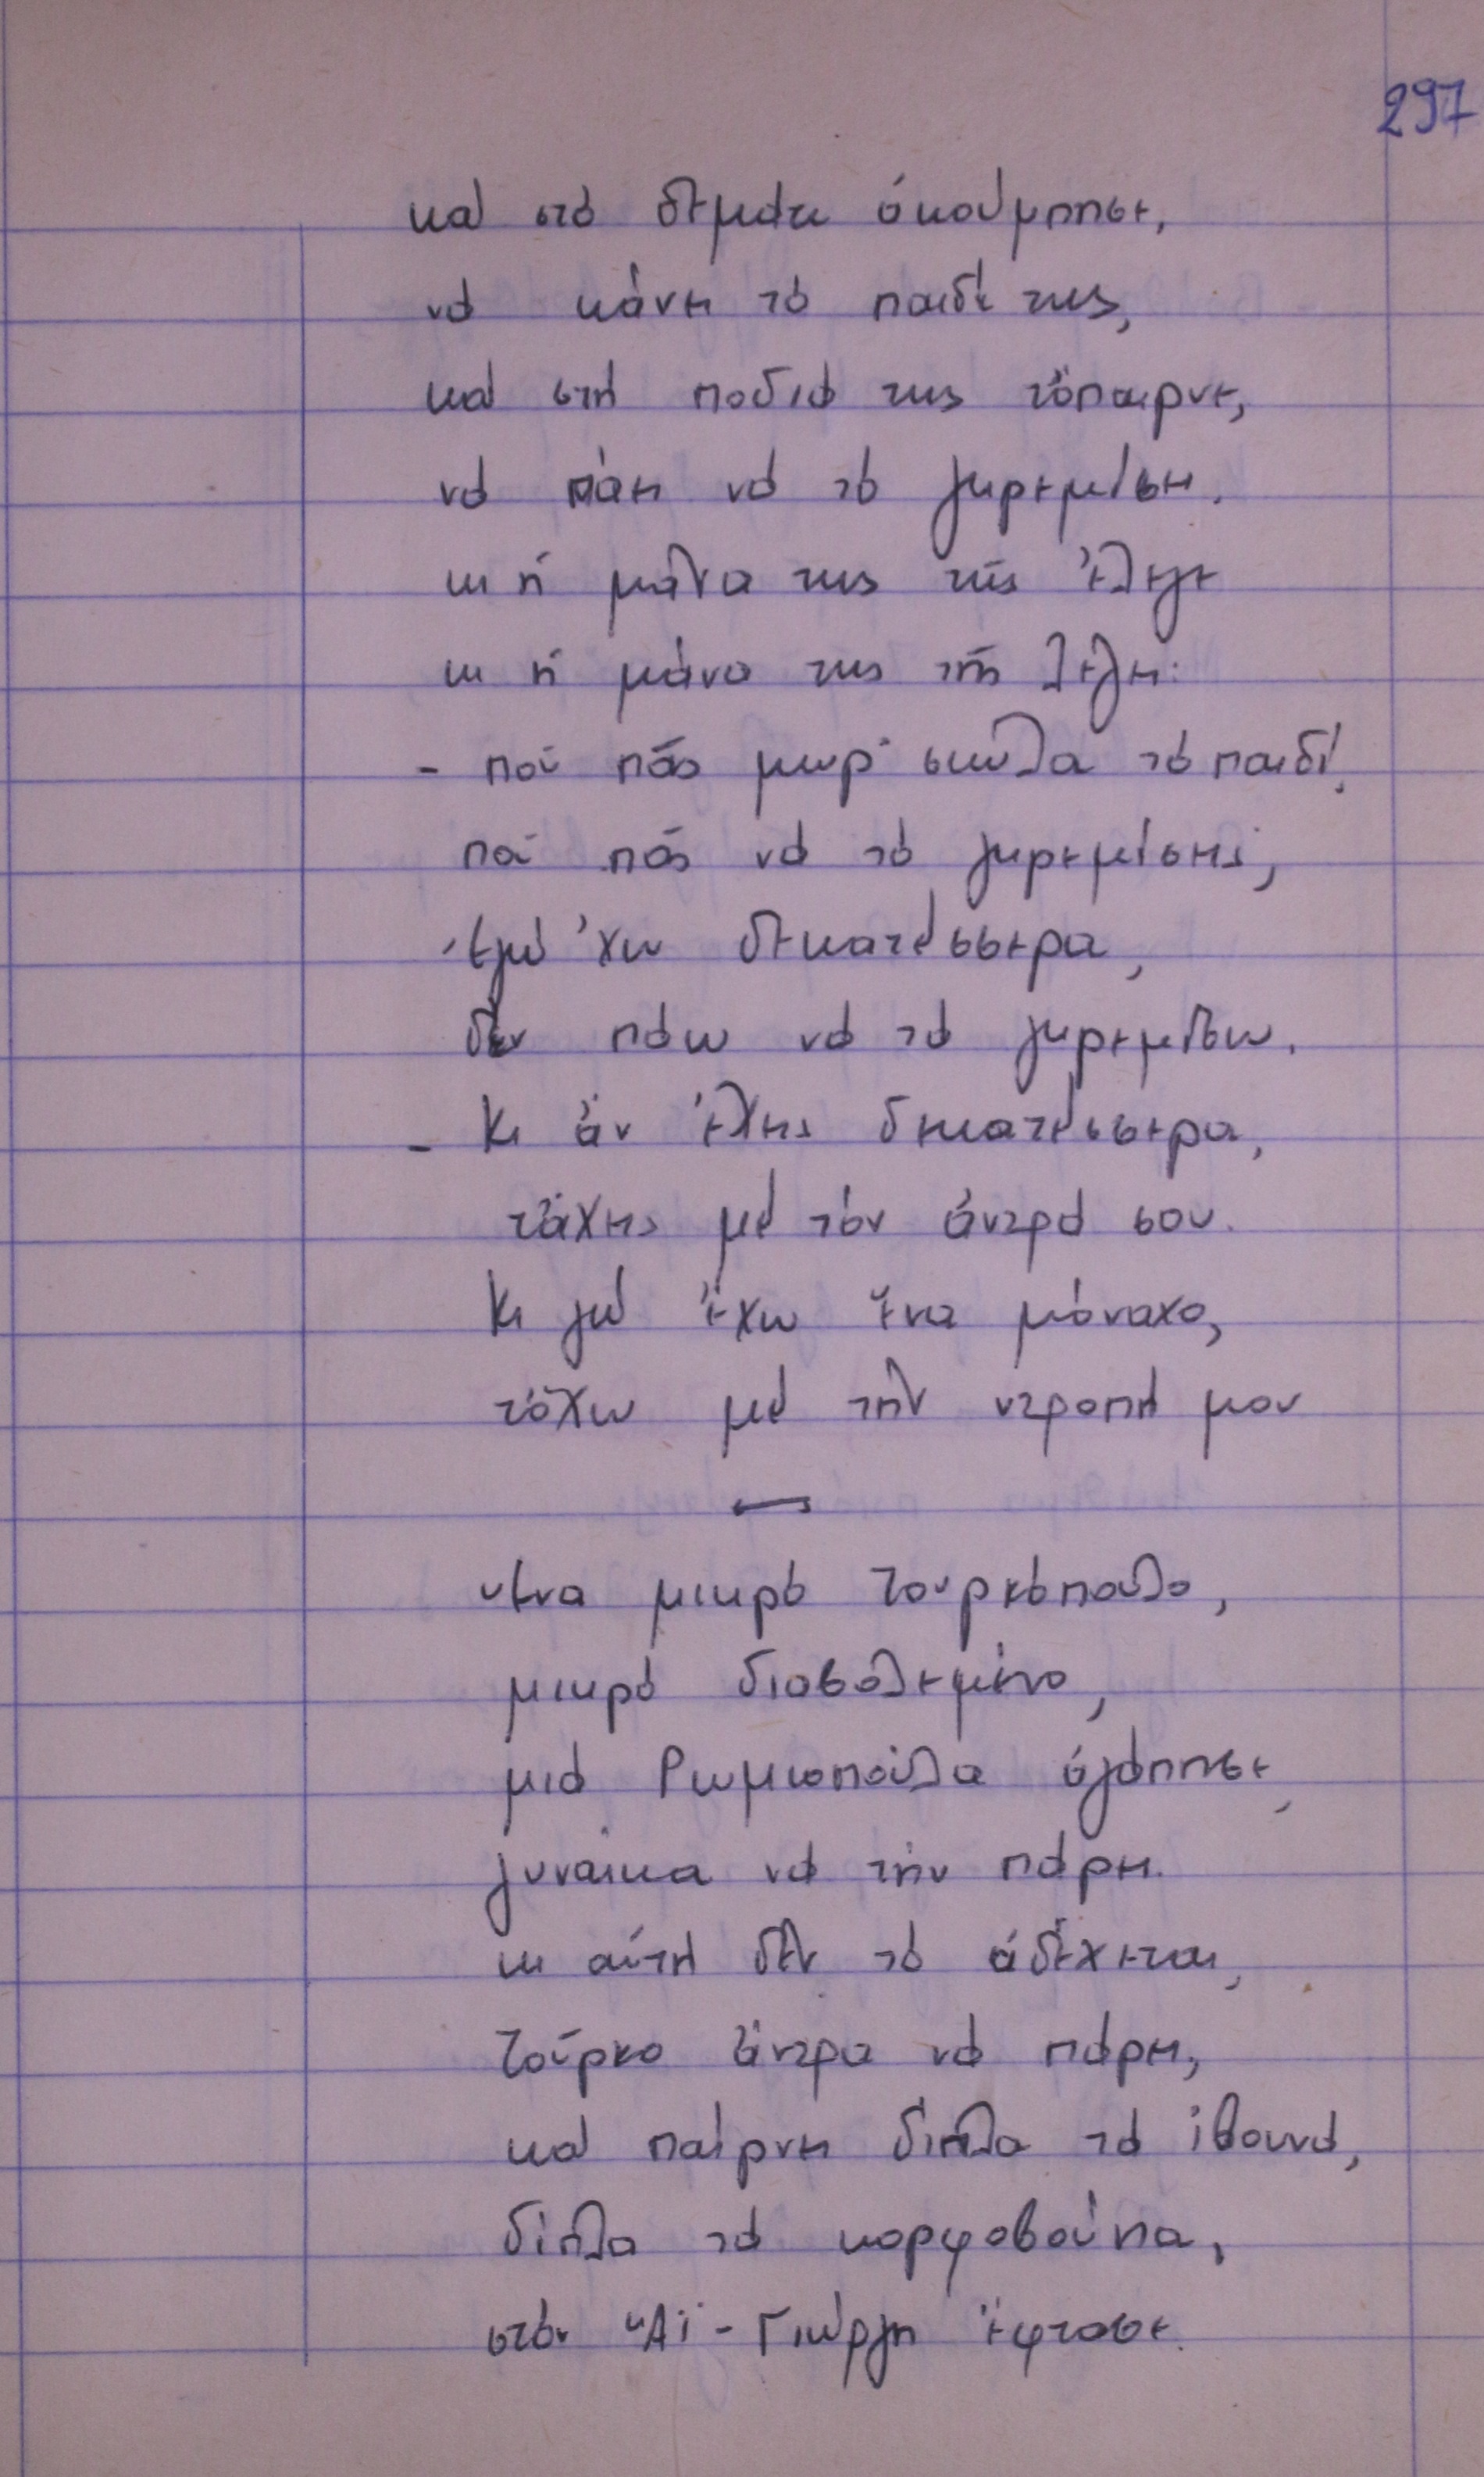 297
καὶ στὸ δεμάτι ἀκούμπησε,
νὰ κάνη τὸ παιδί της,
καὶ στὴ ποδιά της τὄπαιρνε,
νὰ πάη νὰ τὸ γκρεμίση.
κι ἡ μάνα της τῆς ἔλεγε
κι ἡ μάνα της τῆς λέγει:
- ποῦ πᾶς μωρ' σκύλα τὸ παιδί,
ποῦ πᾶς νὰ τὸ γκρεμίσης;
ἐγώ 'χω δεκατέσσερα,
δὲν πάω νὰ τὰ γκρεμίσω.
- Κι ἂν ἔχης δεκατέσσερα,
τἄχης μὲ τὸν ἄντρα σου.
Κι γὼ ἔχω ἕνα μόναχο,
τὄχω μὲ τὴν ντροπή μου
νένα μικρὸ Τουρκόπουλο,
μικρὸ διαβολεμένο,
μιὰ Ρωμιοπούλα ἀγάπησε,
γυναίκα νὰ τὴν πάρη.
κι αὐτὴ δὲν τὸ ἀδέχεται,
Τοῦρκο ἄντρα νὰ πάρη,
καὶ παίρνη δίπλα τὰ ἰβουνά,
δίπλα τὰ κορφοβούνια,
στὸν "Αϊ-Γιώργη ἔφτασε.